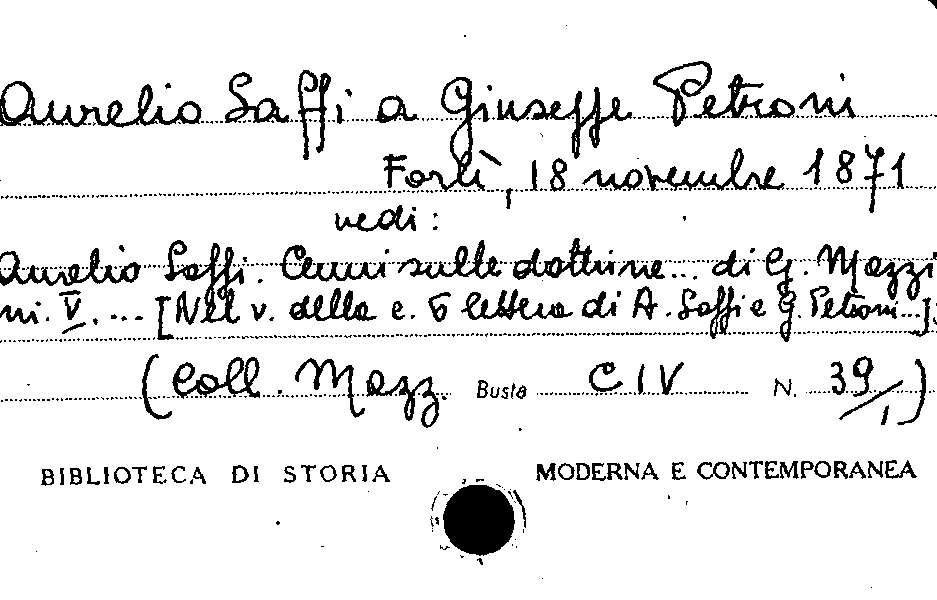 Aurelio Saffi a Giuseppe Petroni
Forlì, 18 novembre 1871
vedi:
Aurelio Saffi. Cenni sulle dottrine... di G. Mazzi
ni. V. ... [Nel v. della c. 5 lettera di A. Saffi e G. Petroni...].
(Coll. Mazz. Busta CIV N. 39/1)
BIBLIOTECA DI STORIA MODERNA E CONTEMPORANEA